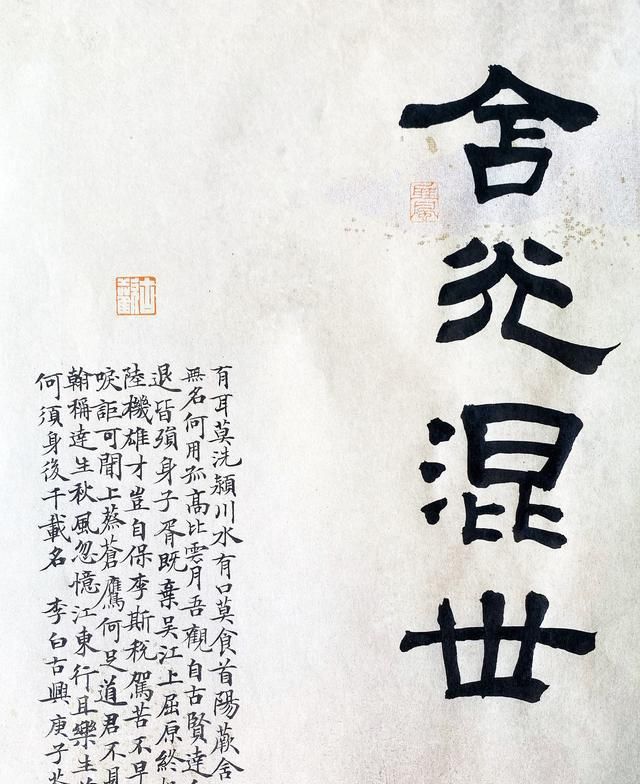 含光混世
有耳莫洗潁川水有口莫食首陽蕨含
無名何用孤高比雲月吾觀自古賢達
退皆殞身子胥既棄吳江上屈原終
陸機雄才豈自保李斯稅駕苦不早
唳詎可聞上蔡蒼鷹何足道君不見
翰稱達生秋風忽憶江東行且樂生
何須身後千載名 李白古興庚子